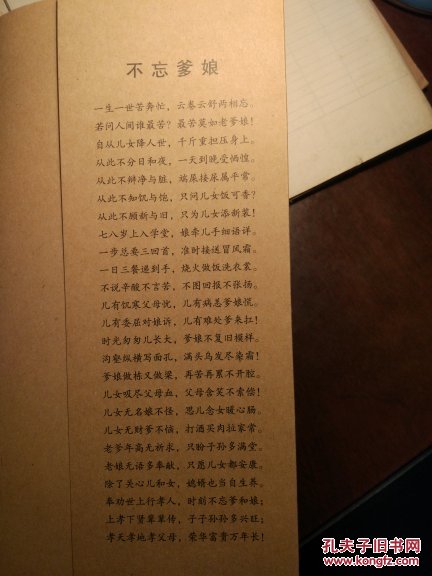 不忘爹娘
一生一世苦奔忙，云卷云舒两相忘。
若问人间谁最苦？最苦莫如老爹娘！
自从儿女降人世，千斤重担压身上。
从此不分日和夜，一天到晚受恓惶。
从此不辨净与脏，端屎接尿属平常。
从此不知饥与饱，只问儿女饭可香？
从此不顾新与旧，只为儿女添新装！
七八岁上入学堂，娘牵儿手细语详。
一步总要三回首，准时接送冒风霜。
一日三餐递到手，烧火做饭洗衣裳。
不说辛酸不言苦，不图回报不张扬。
儿有饥寒父母忧，儿有病恙爹娘慌。
儿有委屈对娘诉，儿有难处爹来扛！
时光匆匆儿长大，爹娘不复旧模样。
沟壑纵横写面孔，满头乌发尽染霜！
爹娘做栋又做梁，再苦再累不开腔。
儿女吸尽父母血，父母含笑不索偿！
儿女无名娘不怪，思儿念女暖心肠。
儿女无财爹不恼，打酒买肉拉家常。
老爹年高无祈求，只盼子孙多满堂。
老娘无语多奉献，只愿儿女都安康。
除了关心儿和女，媳婿也当自生养。
奉劝世上行孝人，时刻不忘爹和娘；
上孝下贤辈辈传，子子孙孙多兴旺；
孝天孝地孝父母，荣华富贵万年长！
孔夫子旧书网